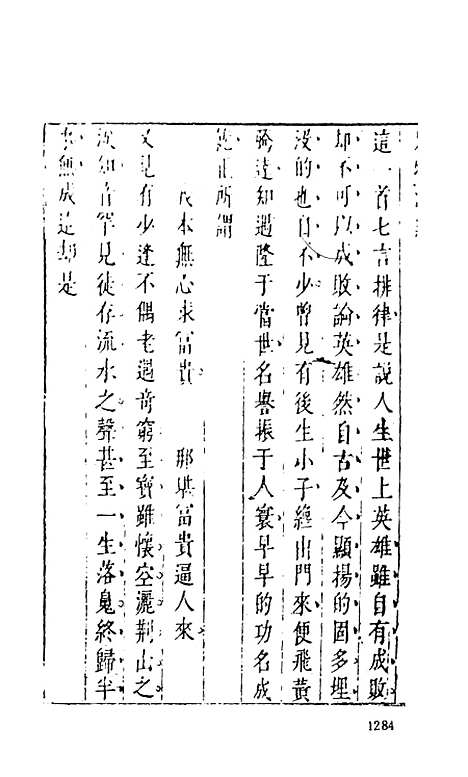 這一首七言排律是說人生世上英雄雖自有成敗
却不可以成敗論英雄然自古及今顯揚的固多埋
沒的也自不少曾見有後生小子纔出門來便飛黃
騰達知遇隆于當世名譽振于人寰早早的功名成
就正所謂
本無心求富貴　那堪富貴逼人來
又見有少逢不偶老遇竒窮至寶雖懷空灑荆山之
淚知音罕見徒存流水之聲甚至一生落鬼終歸半
無成這却是
1284